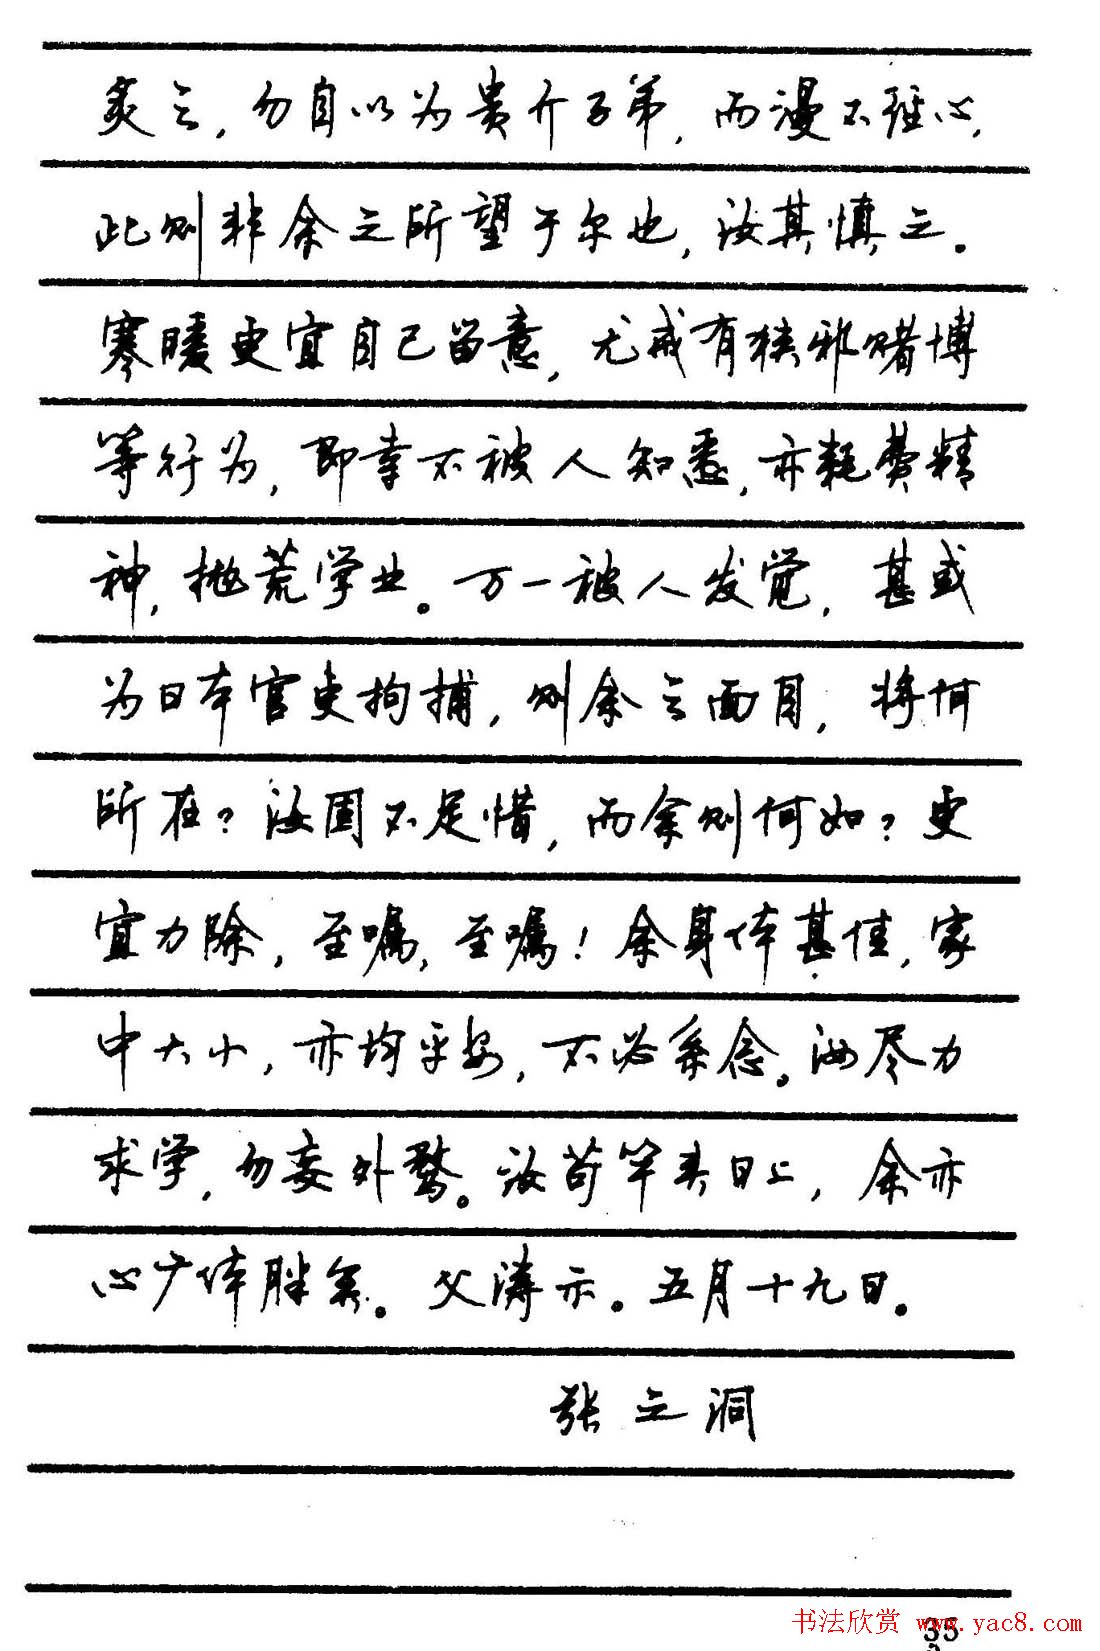 炙之，勿自以为贵介子弟，而漫不经心，
此则非余之所望于尔也，汝其慎之。
寒暖更宜自己留意，尤戒有狭邪赌博
等行为，即幸不被人知悉，亦耗费精
神，抛荒学业。万一被人发觉，甚或
为日本官吏拘捕，则余之面目，将何
所在？汝固不足惜，而余则何如？更
宜力除，至嘱，至嘱！余身体甚佳，家
中大小，亦均平安，不必系念。汝尽力
求学，勿妄外骛。汝苟竿头日上，余亦
心广体胖矣。父涛示。五月十九日。
张之洞
书法欣赏 www.yac8.com
35